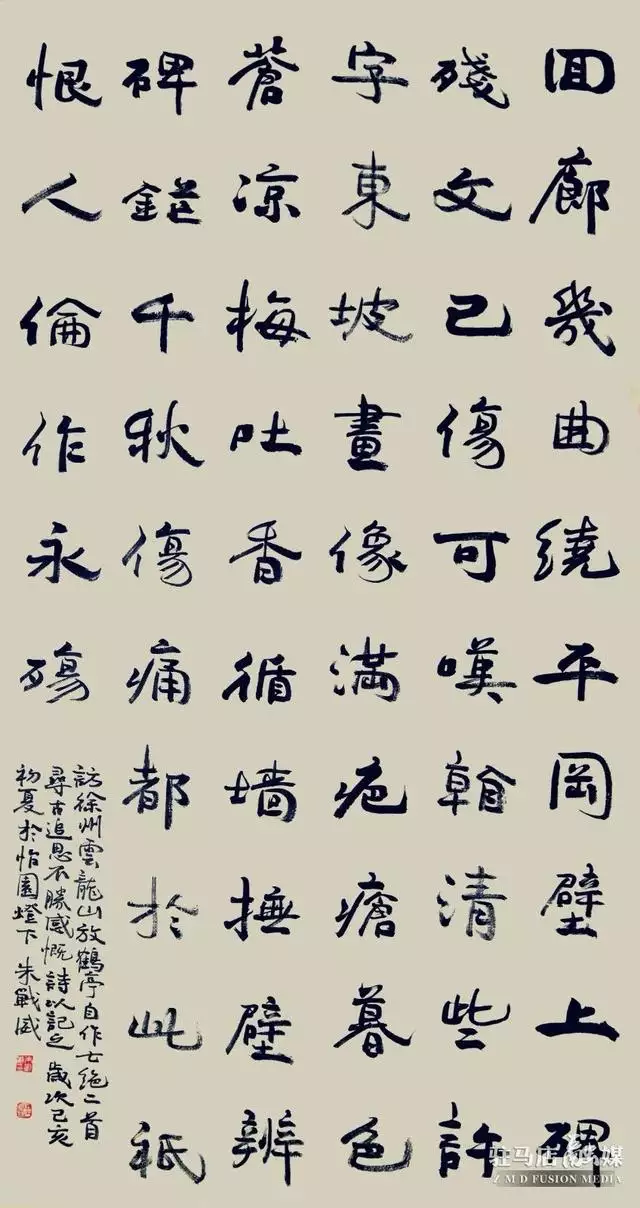 囬廊幾曲繞平岡壁上碑
殘文已傷可嘆翰清些許
字東坡畫像滿疤瘡暮色
蒼凉梅吐香循墙撫壁辨
碑鋩千秋傷痛都於此祇
恨人倫作永殤
訪徐州雲龍山放鶴亭自作七絕二首
尋古追思不勝感慨詩以記之歲次己亥
初夏於怡園燈下朱戰威
驻马店融媒
Z M D FUSION MEDIA